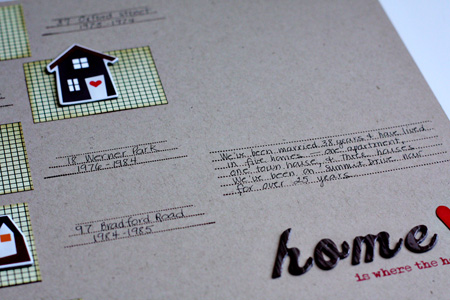 37 Oxford Street
1972-1974
18 Werner Park
1976-1984
We've been married 38 years & have lived
in five homes - one apartment,
one town house, & three houses.
We've been on Summit Drive now
for over 25 years
97 Bradford Road
1984-1985
home
is where the h